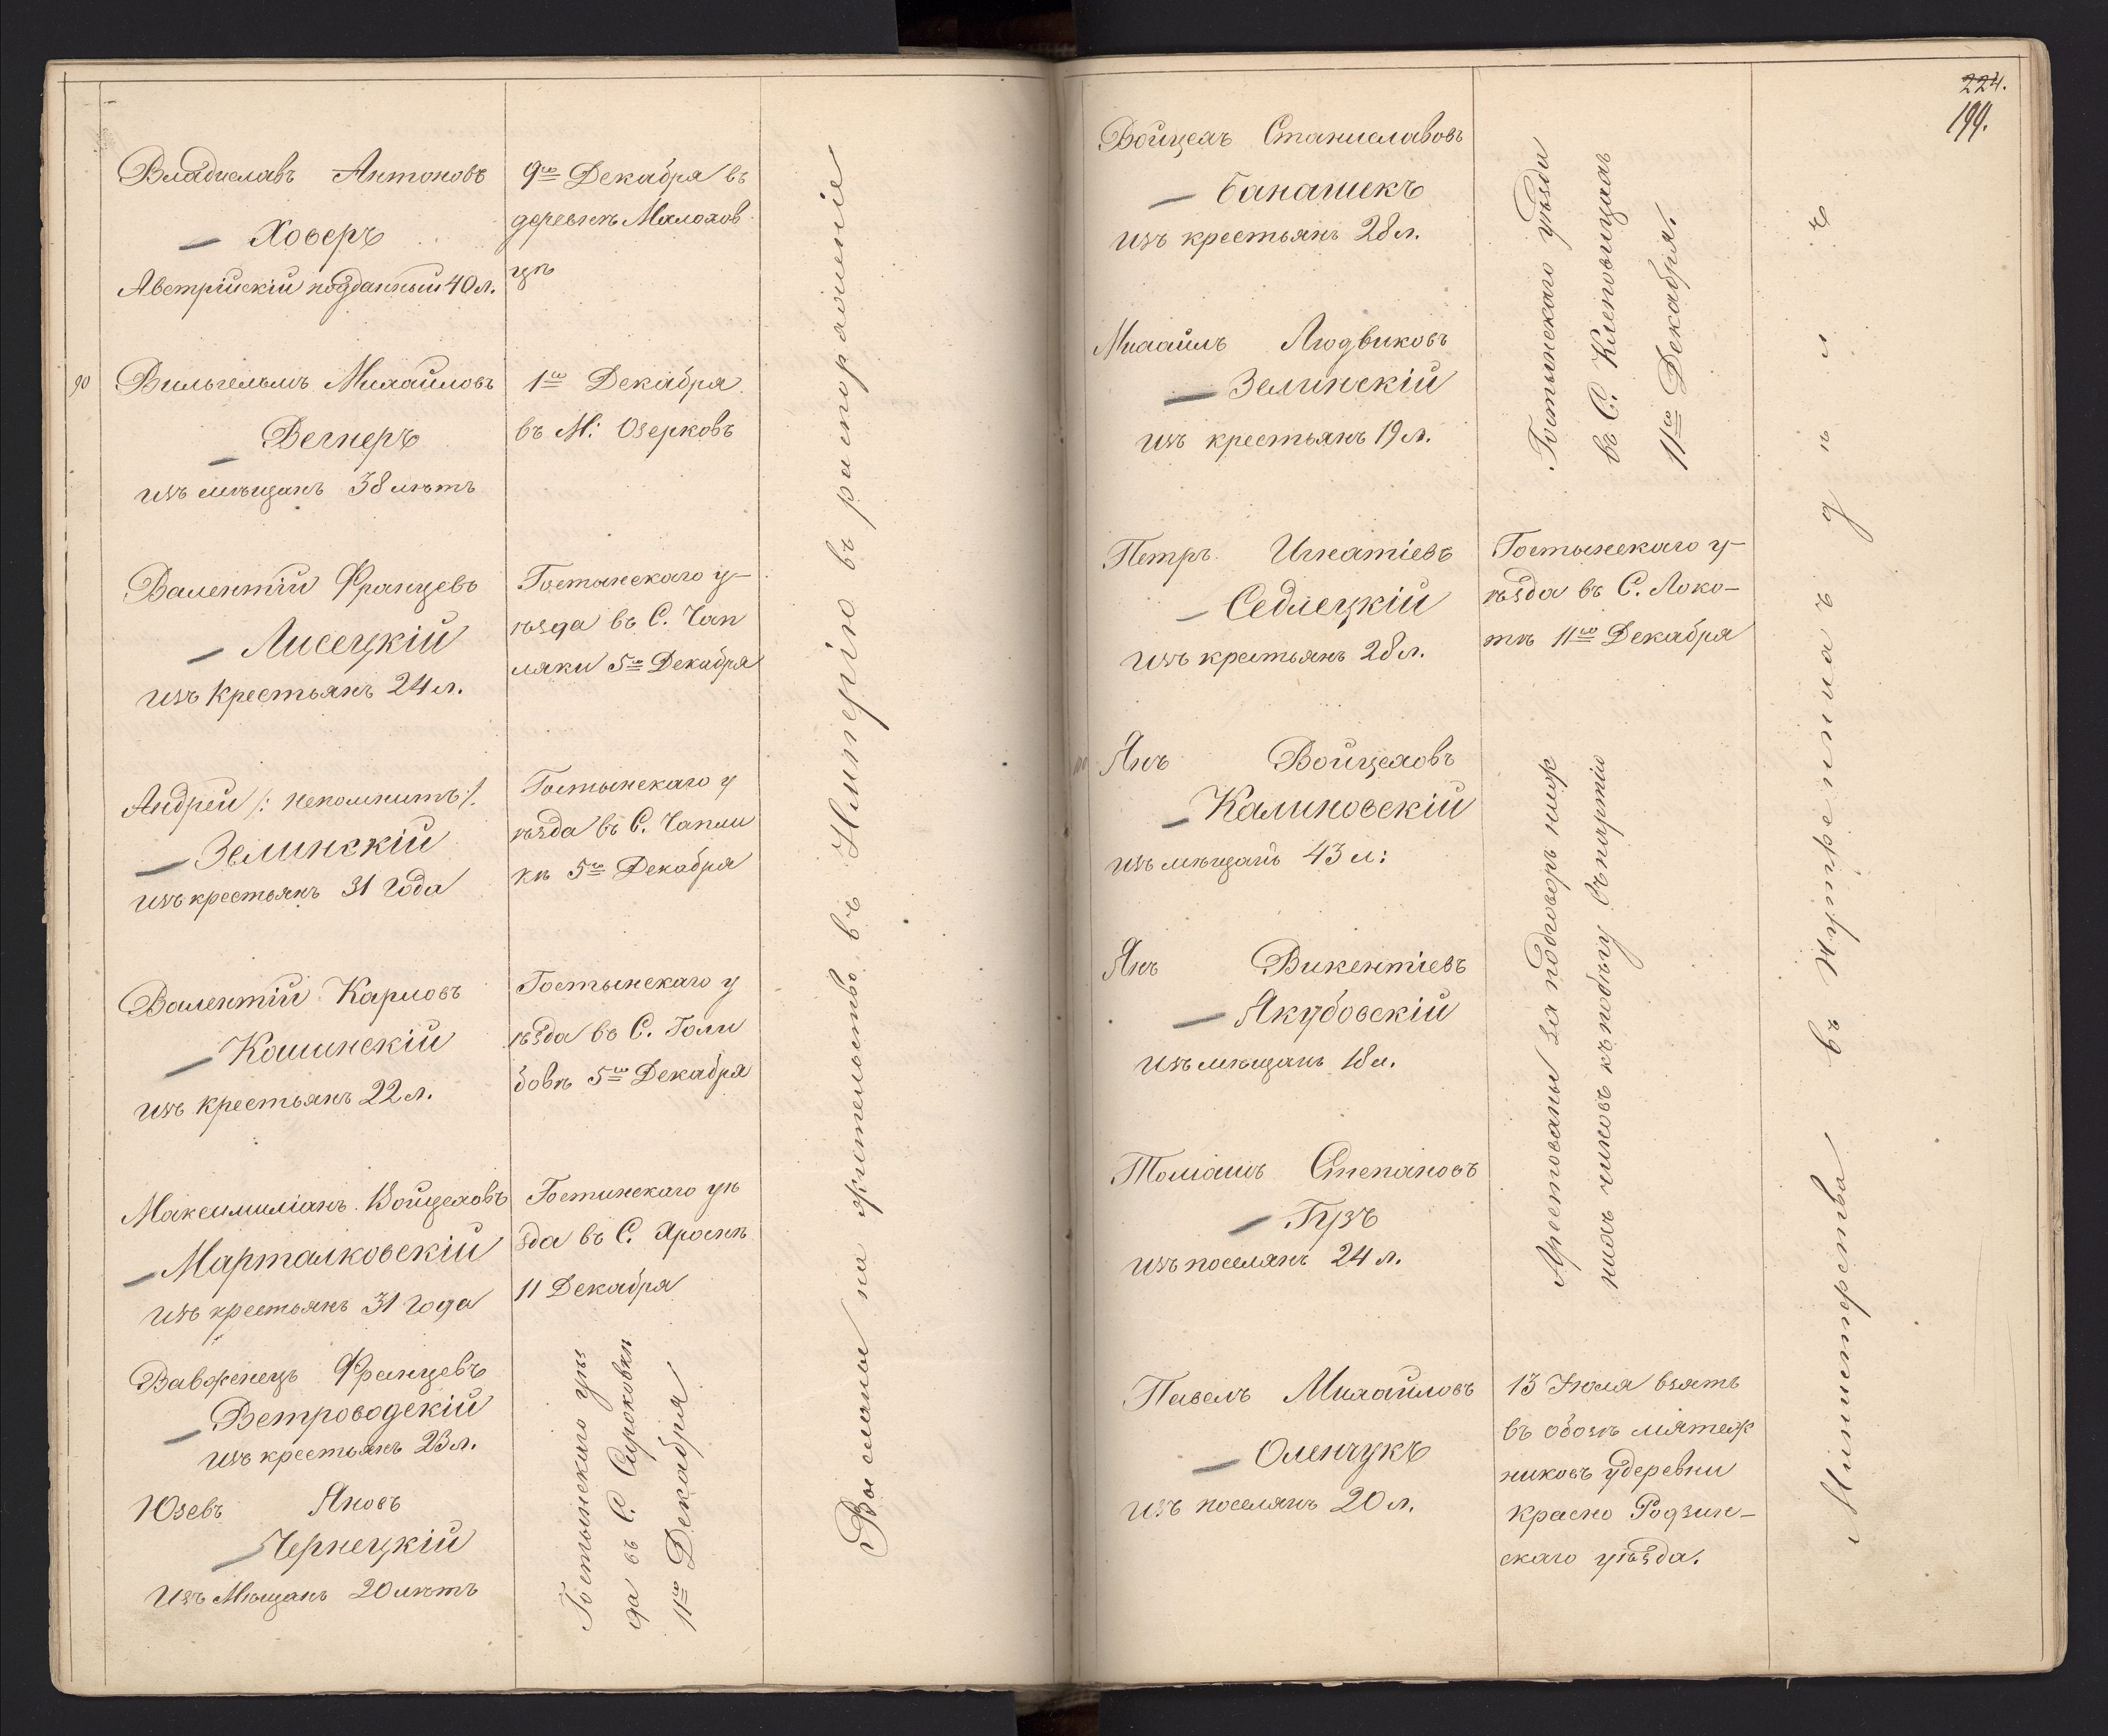 Владиславъ Антоновъ
— Ховеръ
Австрійскій подданный 40 л.
9го Декабря въ
деревнѣ Малохов
цѣ
90
Вильгельмъ Михайловъ
— Вегнеръ
изъ мѣщанъ 38 лѣтъ
1го Декабря
въ М: Озерковъ
Валентій Францевъ
— Лисецкій
изъ крестьянъ 24 л.
Гостынскаго у-
ѣзда въ С. Чап
ляки 5го Декабря
Андрей /: непомнитъ :/.
— Зелинскій
изъ крестьянъ 31 года
Гостынскаго у
ѣзда въ С. Чапли
кѣ 5го Декабря
Валентій Карловъ
— Кошинскій
изъ крестьянъ 22 л.
Гостынскаго у
ѣзда въ С. Голи
бовѣ 5го Декабря
Максимиліанъ Войцеховъ
— Марталковскій
изъ крестьянъ 31 года
Гостинскаго уѣ
зда въ С. Яроснѣ
11 Декабря
Вавженецъ Францевъ
— Ветроводскій
изъ крестьянъ 23 л.
Юзевъ Яновъ
— Чернецкій
изъ Мѣщанъ 20 лѣтъ
Гостынскаго уѣз
да въ С. Сироковкѣ
11го Декабря
Высланы на жительство въ Имперію въ распоряженіе
224.
199.
Войцехъ Станиславовъ
— Банашекъ
изъ крестьянъ 28 л.
Михаилъ Людвиковъ
— Зелинскій
изъ крестьянъ 19 л.
Гостынскаго уѣзда
въ С. Клеповицахъ
11го Декабря.
Петръ Игнатіевъ
— Седлецкій
изъ крестьянъ 28 л.
Гостынскаго у-
ѣзда въ С. Локо-
тѣ 11го Декабря
100
Янъ Войцеховъ
— Калиновскій
изъ мѣщанъ 43 л:
Янъ Викентіевъ
— Якубовскій
изъ мѣщанъ 18 л.
Томашъ Степановъ
— Гузъ
изъ поселянъ 24 л.
Арестованы за подговоръ ниж
нихъ чиновъ къ побѣгу въ партію
Павелъ Михайловъ
— Оленчукъ
изъ поселянъ 20 л.
13 Іюля взятъ
въ обозѣ мятеж
никовъ у деревни
Красно Родзин-
скаго уѣзда.
Министерства внутреннихъ дѣлъ